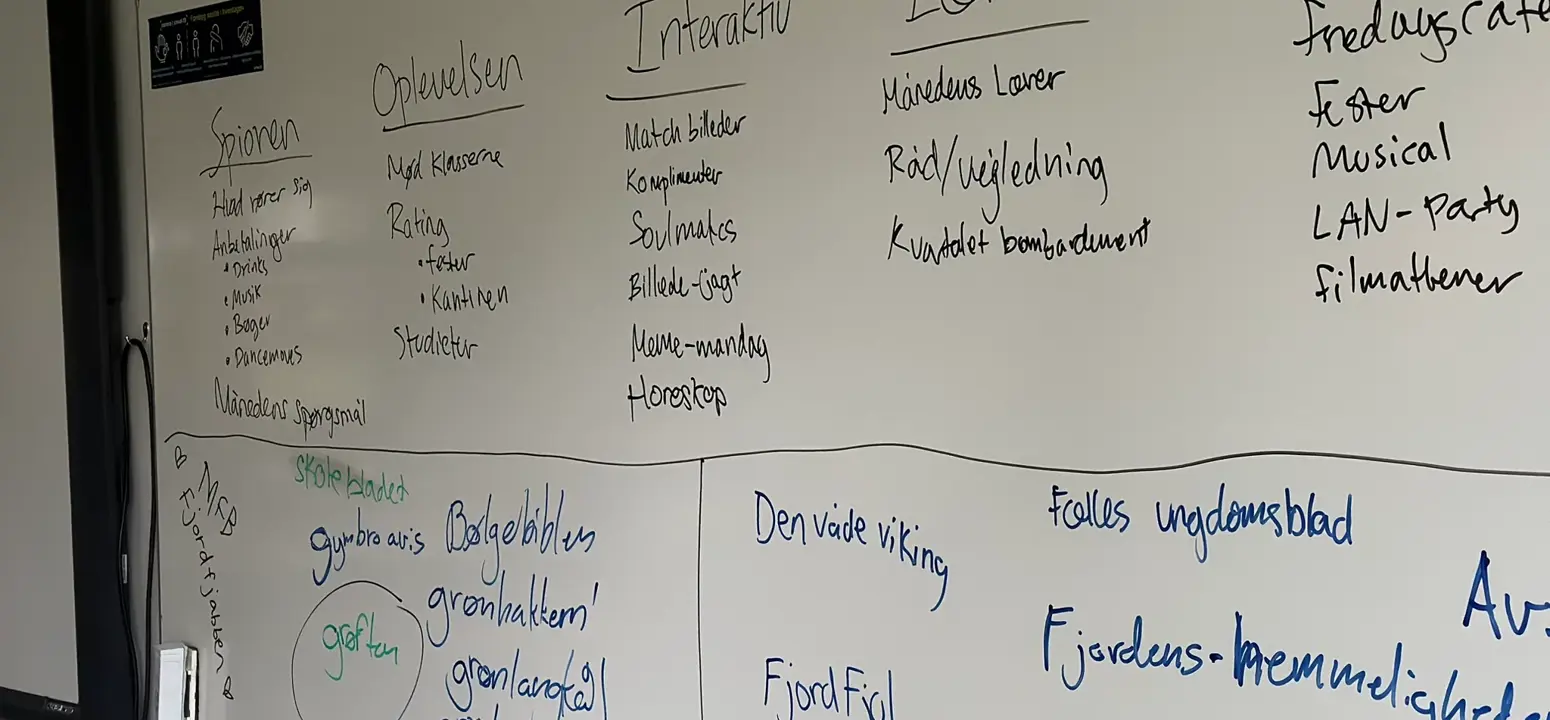 Spionen
Hvad rører sig
Anbefalinger
• Drinks
• Musik
• Bøger
• Dancemoves
Månedens spørgsmål
Oplevelsen
Mød klasserne
Rating
• fester
• Kantinen
Studietur
Interaktiv
Match billeder
Komplimenter
Soulmates
Billede-jagt
Meme-mandag
Horoskop
Månedens Lærer
Råd/vejledning
Kvartalet bombardement
Fredagscafe
Fester
Musical
LAN-Party
filmaftener
MFB
Fjordfjabben
skolebladet
gymbro avis
Bølgebiblen
grønhakkern'
grøften
Den våde viking
FjordFjol
Fælles ungdomsblad
Fjordens-hemmelighed